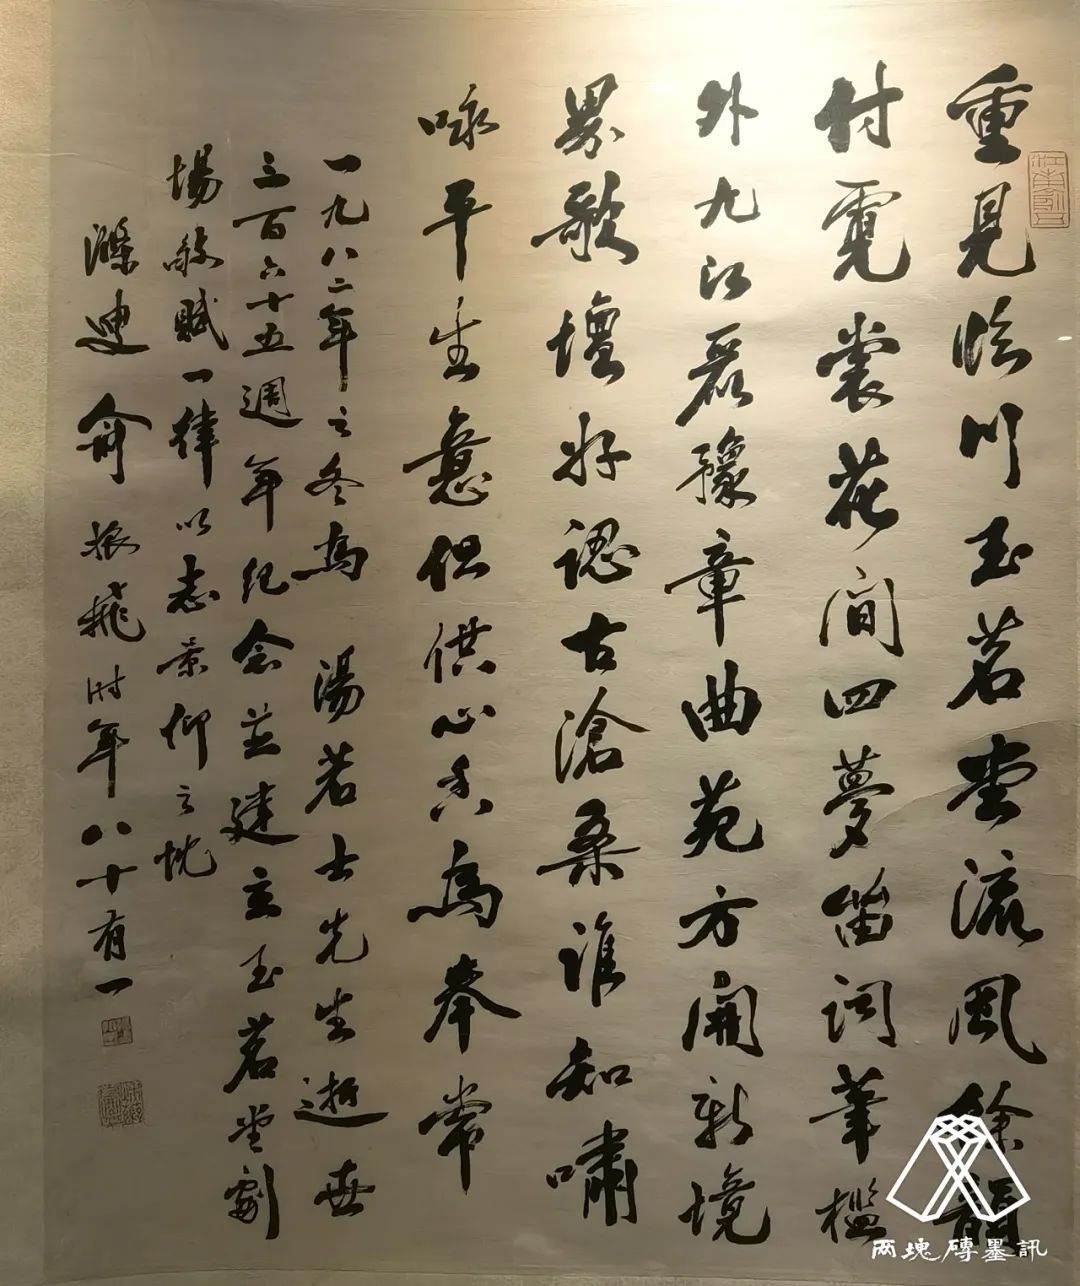 重見臨川玉茗堂流風餘韻
付霓裳花間四夢笛詞筆檻
外九江羅豫章曲苑方開新境
界歌壇好認古滄桑誰知嘯
咏平生意但供心香為奉常
一九八二年之冬為 湯若士先生逝世
三百六十五週年紀念並建立玉茗堂劇
場敬賦一律以志景仰之忱
滌叟俞振飛時年八十有一
两塊磚墨訊